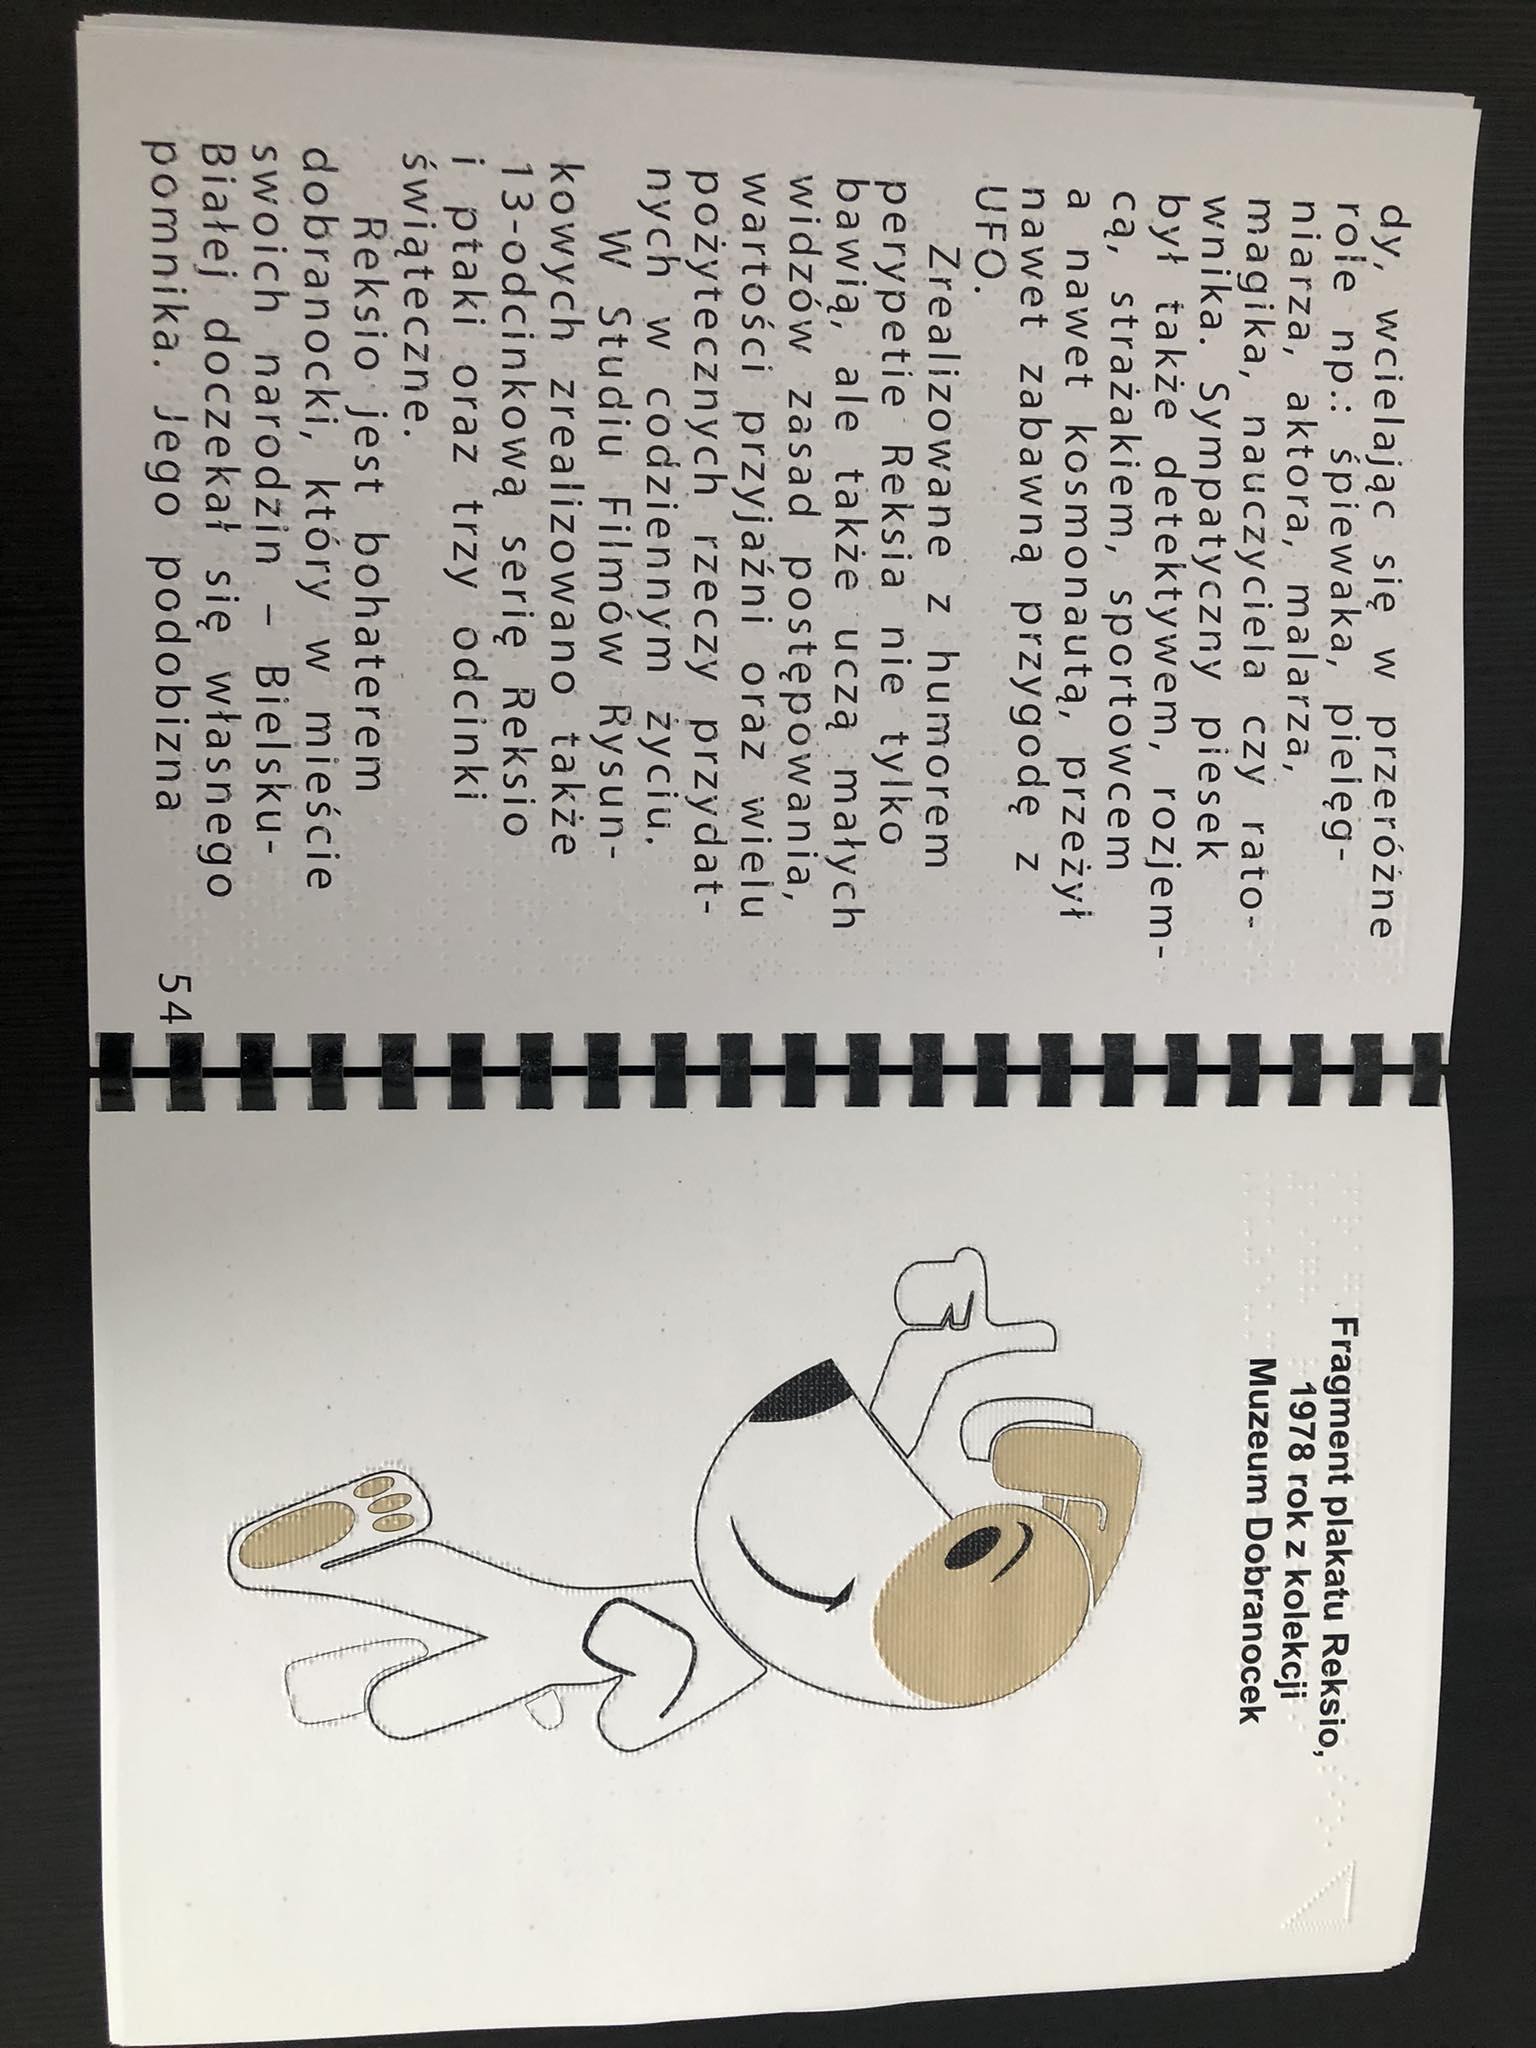 dy, wcielając się w przeróżne
role np.: śpiewaka, pielęg-
niarza, aktora, malarza,
magika, nauczyciela czy rato-
wnika. Sympatyczny piesek
był także detektywem, rozjem-
cą, strażakiem, sportowcem
a nawet kosmonautą, przeżył
nawet zabawną przygodę z
UFO.
Zrealizowane z humorem
perypetie Reksia nie tylko
bawią, ale także uczą małych
widzów zasad postępowania,
wartości przyjaźni oraz wielu
pożytecznych rzeczy przydat-
nych w codziennym życiu.
W Studiu Filmów Rysun-
kowych zrealizowano także
13-odcinkową serię Reksio
i ptaki oraz trzy odcinki
świąteczne.
Reksio jest bohaterem
dobranocki, który w mieście
swoich narodzin – Bielsku-
Białej doczekał się własnego
pomnika. Jego podobizna
54
Fragment plakatu Reksio,
1978 rok z kolekcji
Muzeum Dobranocek